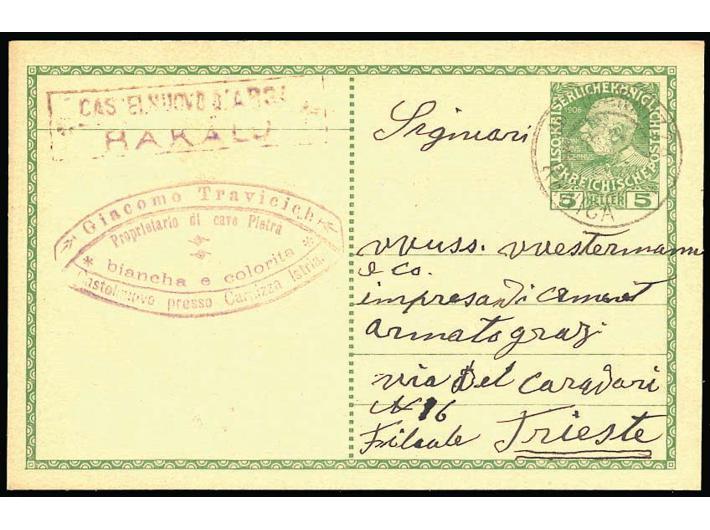 CASTELNUOVO D'ARSA
RAKALJ
Giacomo Travicich
Proprietario di cave Pietra
* biancha e colorita *
Castelnuovo presso Carnizza Istria.
KAISERLICHE KÖNIGLICHE
ÖSTERREICHISCHE POST
5 HELLER 5
Signiari
vvuss. vvestermann
e co.
impresa di cement
armatograzi
via del Caradari
N 16
Filiale Trieste